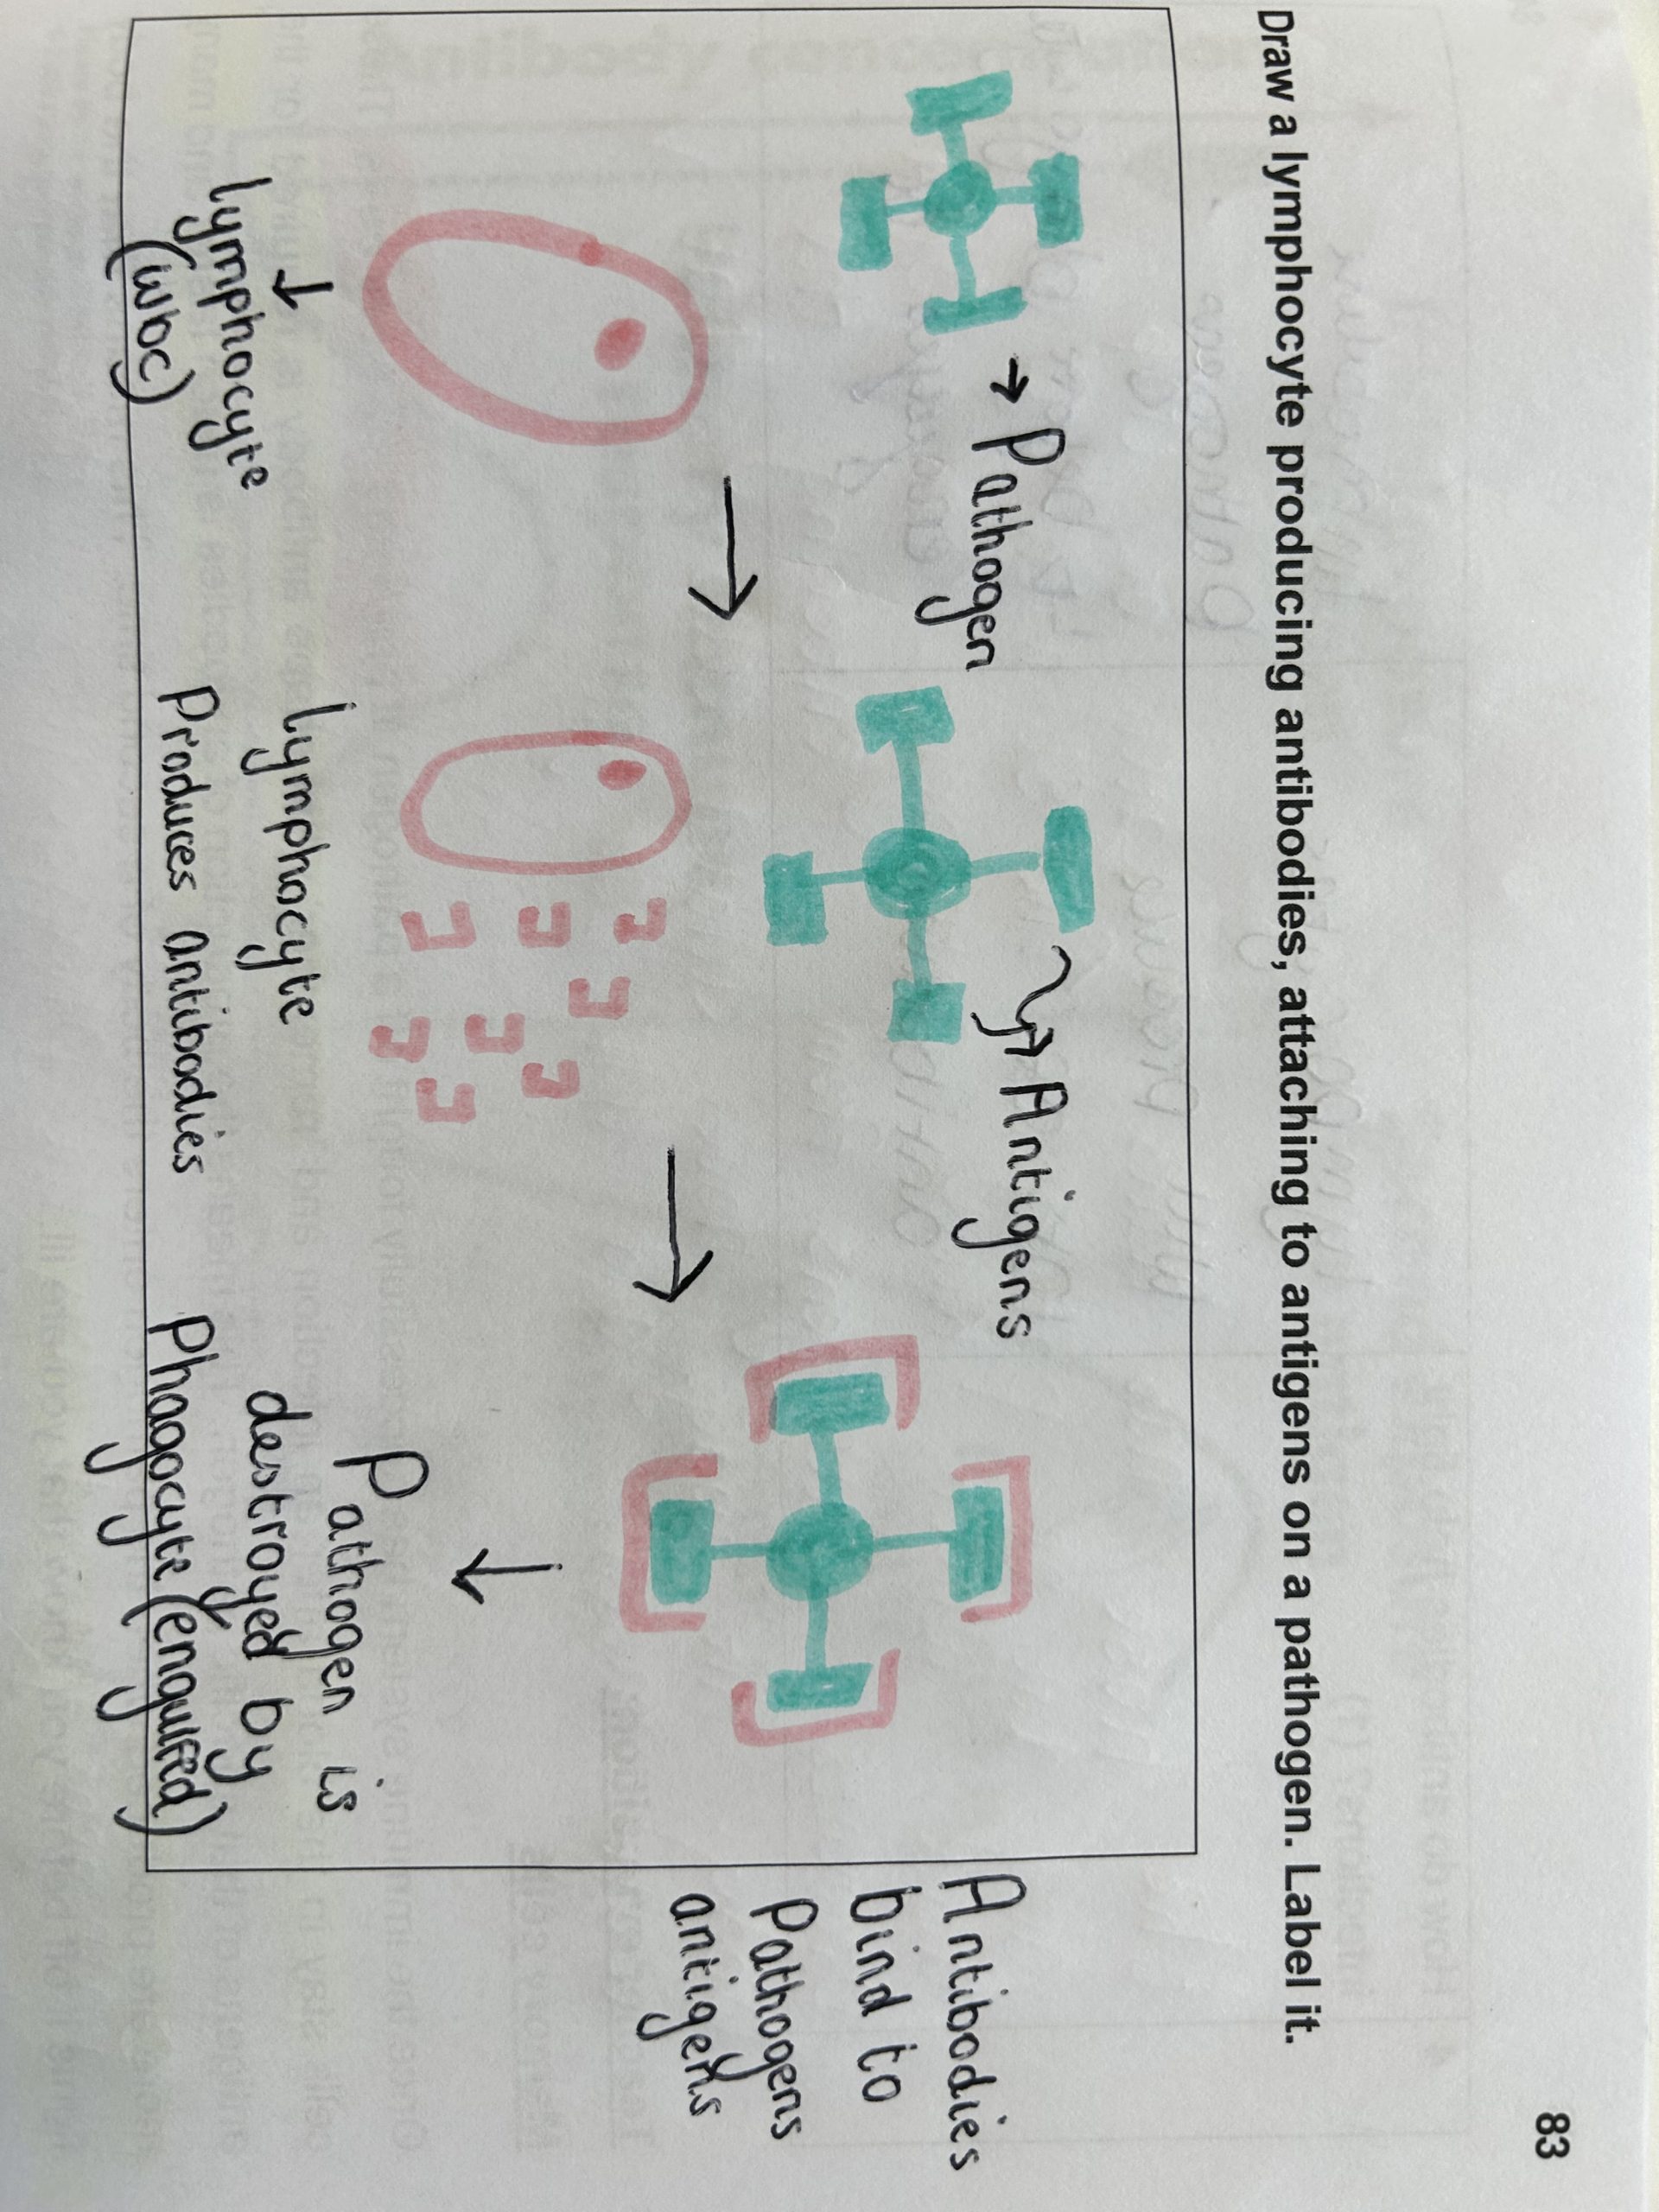 83
Draw a lymphocyte producing antibodies, attaching to antigens on a pathogen. Label it.
→ Pathogen
Antigens
Antibodies
bind to
Pathogens
antigens
Lymphocyte
(WBC)
Lymphocyte
Produces antibodies
Pathogen is
destroyed by
Phagocyte (engulfed)